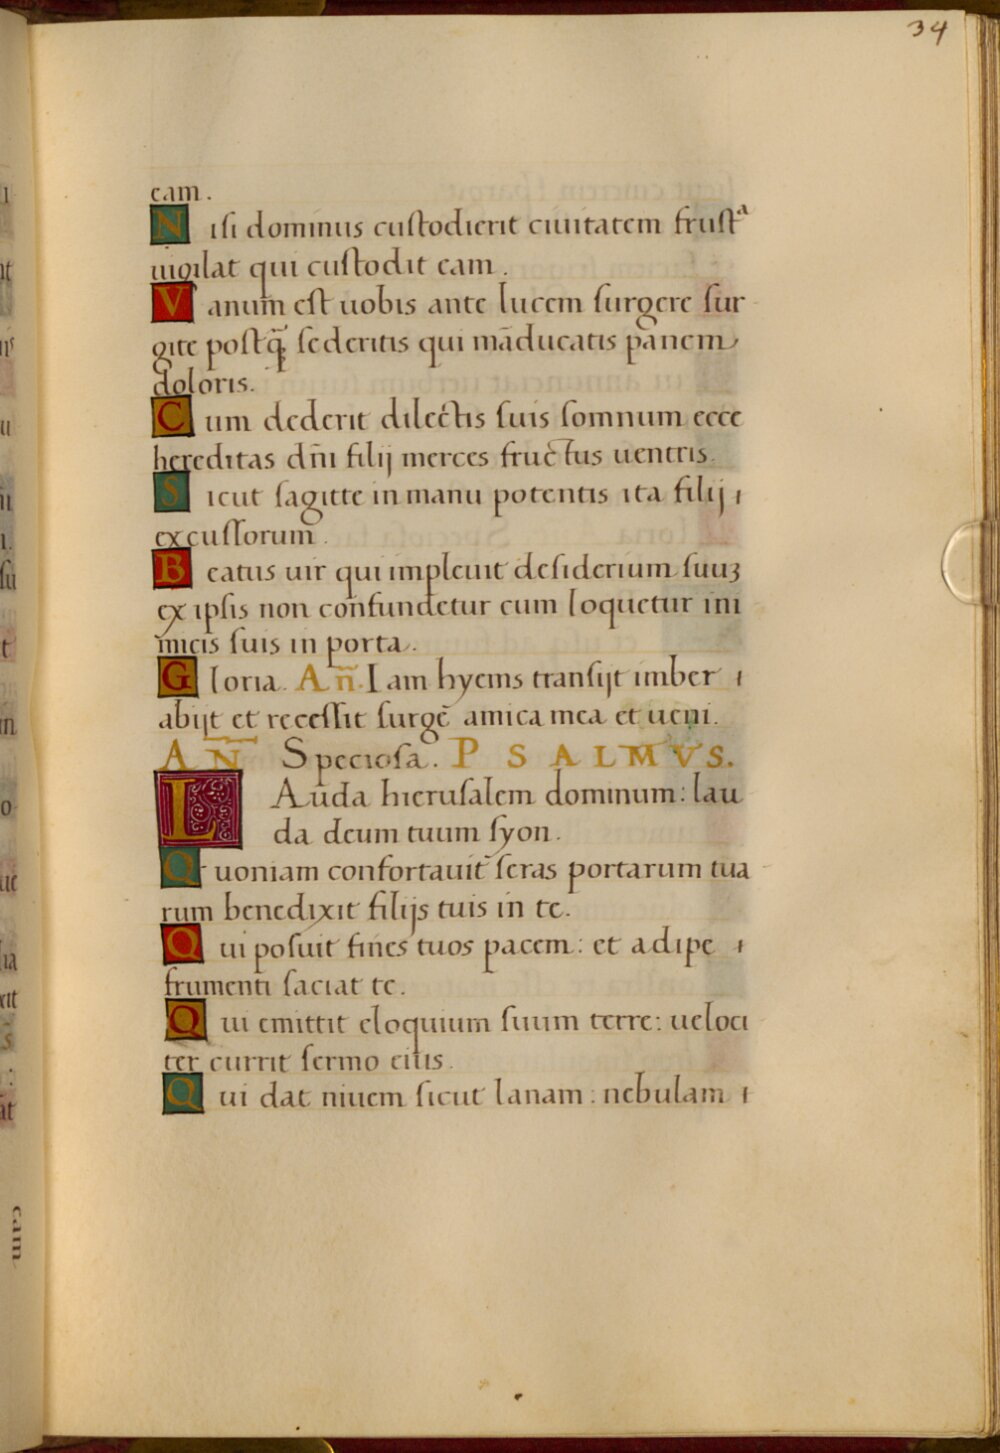 34
eam.
Nisi dominus cuſtodierit ciuitatem fruſtᵃ
uigilat qui cuſtodit eam.
Vanum eſt uobis ante lucem ſurgere ſur
gite poſtq̄ ſederitis qui māducatis panem
doloris.
Cum dederit dilectis ſuis ſomnum ecce
hereditas dn̄i filij merces fructus uentris.
Sicut ſagitte in manu potentis ita filij
excuſſorum.
Beatus uir qui impleuit deſiderium ſuuꝫ
ex ipſis non confundetur cum loquetur ini
micis ſuis in porta.
Gloria. An̄. Iam hyems tranſijt imber
abijt et receſſit ſurge amica mea et ueni.
AN̄ Specioſa. PSALMVS.
LAuda hieruſalem dominum: lau
da deum tuum ſyon.
Quoniam confortauit ſeras portarum tua
rum benedixit filijs tuis in te.
Qui poſuit fines tuos pacem: et adipe
frumenti ſaciat te.
Qui emittit eloquium ſuum terre: ueloci
ter currit ſermo eius.
Qui dat niuem ſicut lanam: nebulam
eam